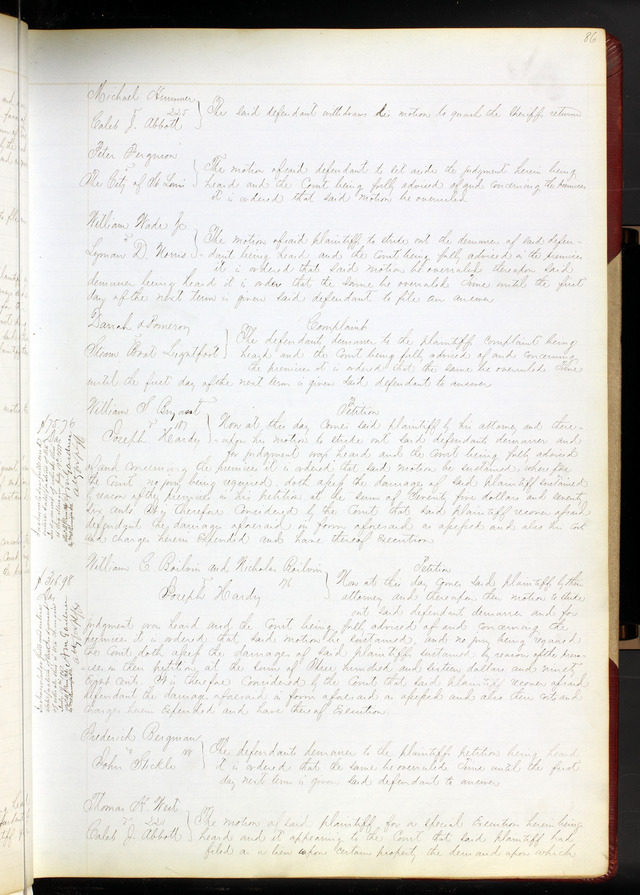 86
Michael Hummer
vs 225
Caleb J. Abbott } The said defendant withdraws his motion to quash the Sheriffs return
Peter Ferguson
vs
The City of St Louis } The motion of said defendant to set aside the judgment herein being
heard and the Court being fully advised of and concerning the premises
it is ordered that said motion be overruled
William Wade Jr
vs
Lyman D. Norris } The motion of said plaintiff to strike out the demurrer of said defen-
dant being heard and the Court being fully advised in the premises
it is ordered that said motion be overruled thereupon said
demurrer being heard it is order that the same be overruled time until the first
day of the next term is given said defendant to file an answer
Darrah & Pomeroy Complaint
vs
Steam Boat Lightfoot } The defendants demurrer to the plaintiffs complaint being
heard and the Court being fully advised of and concerning
the premises it is ordered that the same be overruled time
until the first day of the next term is given said defendant to answer
William S. Bryant Petition
vs 187
Joseph Hardy } Now at this day comes said plaintiff by his attorney and there-
upon his motion to strike out said defendants demurrer and
for judgment was heard and the Court being fully advised
of and concerning the premises it is ordered that said motion be sustained, wherefore
the Court no jury being required, doth assess the damages of said plaintiff sustained
by reason of the premises in his petition at the sum of Seventy five dollars and seventy
six cents It is therefore Considered by the Court that said plaintiff recover of said
defendant the damages aforesaid in form aforesaid as assessed and also his costs
and charges herein expended and have thereof Execution
$75.76
William C. Boilvin and Nicholas Boilvin Petition
vs 176
Joseph Hardy } Now at this day comes said plaintiffs by their
attorney and thereupon their motion to strike
out said defendants demurrer and for
judgment was heard and the Court being fully advised of and concerning the
premises it is ordered that said motion be sustained, and no jury being required
the Court doth assess the damages of said plaintiffs sustained by reason of the prem-
ises in their petition, at the sum of three hundred and sixteen dollars and ninety
Eight cents. It is therefore Considered by the Court that said plaintiffs recover of said
defendant the damages aforesaid in form aforesaid as assessed and also their costs and
charges herein expended and have thereof Execution
$316.98
Frederick Bergman
vs
John Stickle } The defendants demurrer to the plaintiffs petition being heard
it is ordered that the same be overruled time until the first
day next term is given said defendant to answer
Thomas H. West
vs 221
Caleb J. Abbott } The motion of said plaintiff for a special Execution herein being
heard and it appearing to the Court that said plaintiff had
filed as a lien upon certain property the demand upon which